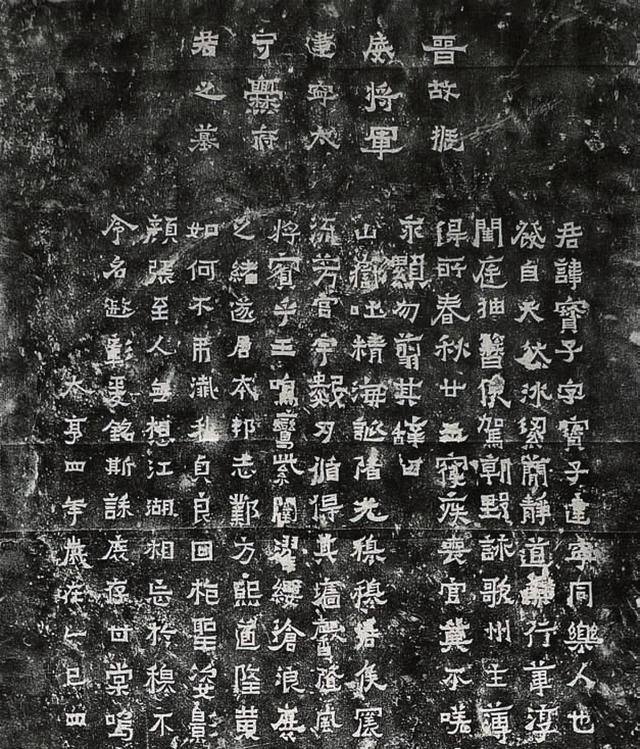 晉故振
威將軍
建寧太
守爨府
君之墓
君諱寶子字寶子建寧同樂人也
發自天然冰絜簡靜道兼行葦淳
閨庭抽簪俟駕朝野詠歌州主簿
得所春秋廿五寢疾喪官莫不嗟
永顯勿翦其辭曰
山嶽吐精海誕陼光穆穆君侯震
流芳宮宇數仞循得其墻馨隨風
將賓乎王鳴鸞紫闥濯纓滄浪庶
之緒遂居本邦志鄴方熙道隆黃
如何不弔殲我貞良回抱聖姿影
顏張至人無想江湖相忘於穆不
令名遐彰爰銘斯誄庶存甘棠嗚
太亨四年歲在乙巳四